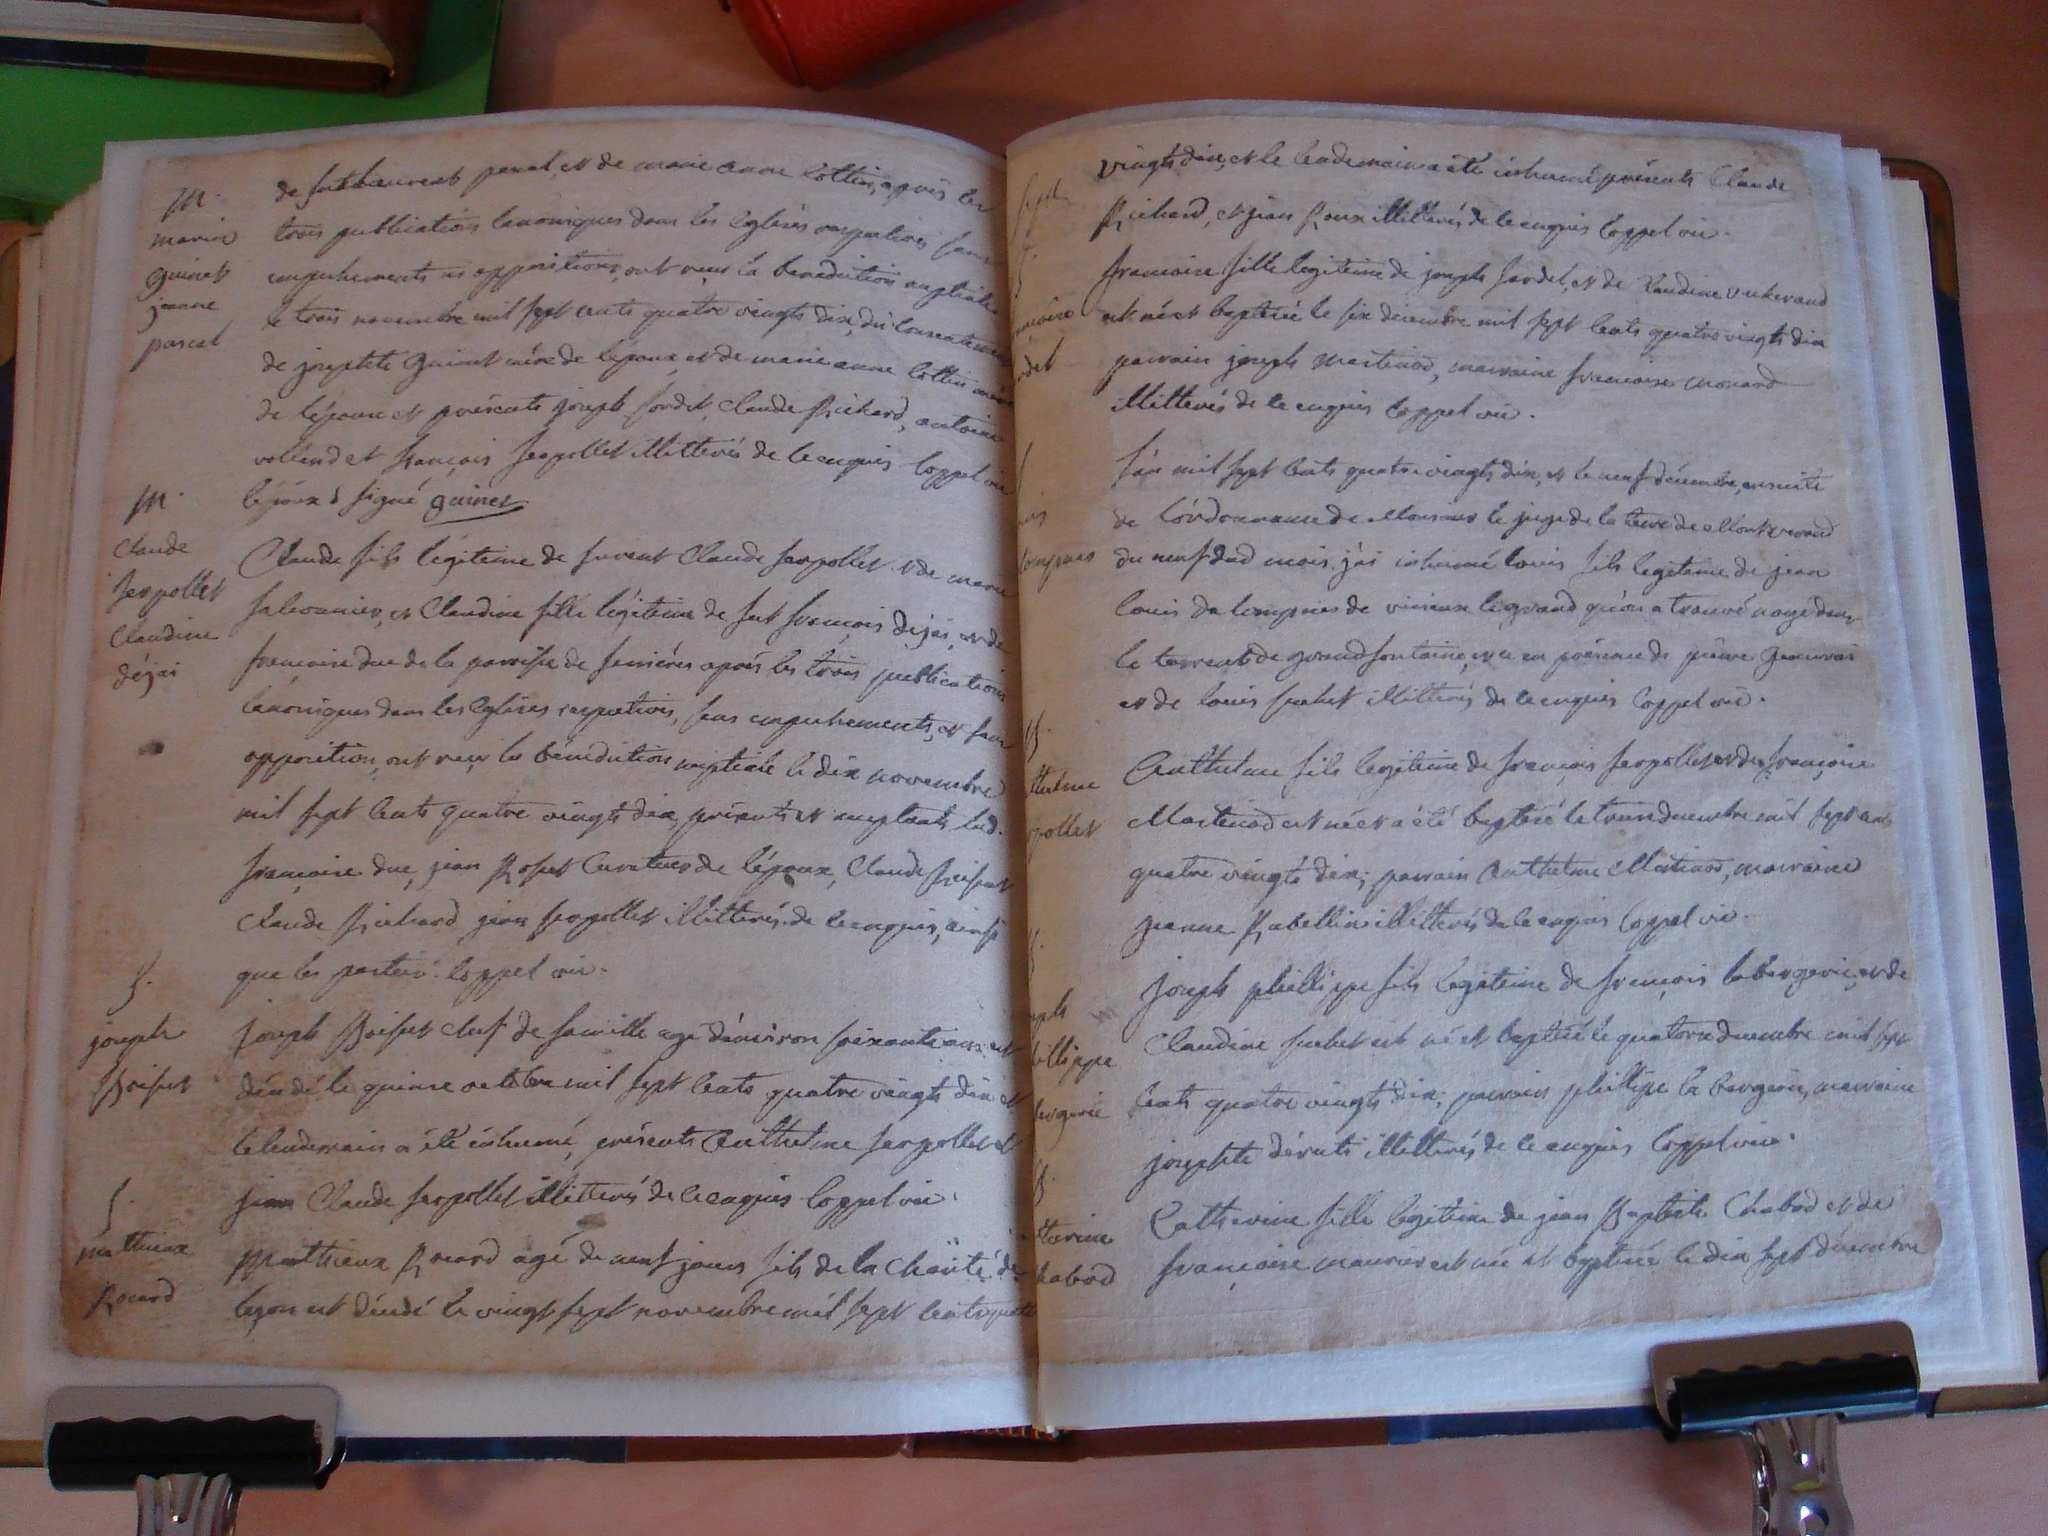 M.
marin
guinet
jeanne
pascal
de fut laurent pascal, et de marie anne cottin, après les
trois publications canoniques dans les Eglises respectives sans
empechements ni oppositions, ont reçu la benediction nuptiale
le trois novembre mil sept cents quatre vingts dix, du consentement
de josephte guinet mère de l'époux, et de marie anne cottin mère
de l'épouse et présents joseph sordet, claude Richard, antoine
vollend et françois serpollet illitterés de ce enquis Coppel vic
l'époux a signé guinet
M.
Claude
serpollet
Claudine
déjai
Claude fils légitime de suvent Claude serpollet et de marie
et Claudine fille légitime de fut françois déjai, et de
françoise duc de la parroisse de après les trois publications
canoniques dans les Eglises respectives, sans empechements, et sans
opposition, ont reçu la bénédiction nuptiale le dix novembre
mil sept cents quatre vingts dix, présents et acceptants lad.
françoise duc, jean Rosset curateur de l'époux, Claude
Claude Richard, jean serpollet illitterés de ce enquis, ainsi
que les parties. Coppel vic.
S.
joseph
Boisset
joseph Boisset chef de famille agé d'environ soixante ans est
décédé le quinze octobre mil sept cents quatre vingts dix et
le lendemain a été inhumé, présents Anthelme serpollet et
jean Claude serpollet illitterés de ce enquis Coppel vic.
S.
mathieux
Ronard
Mathieux Ronard agé de neuf jours fils de la Charité de
lyon est décédé le vingt sept novembre mil sept cents quatre
vingts dix, et le lendemain a été inhumé présents Claude
Richard, et jean Roux illitterés de ce enquis Coppel vic.
françoise fille legitime de joseph sordet, et de Claudine
est née et baptisée le six decembre mil sept cents quatre vingts dix
parrain joseph martinod, marraine françoise monard
illitterés de ce enquis Coppel vic.
L'an mil sept cents quatre vingts dix, et le neuf décembre, ensuite
de l'ordonnance de Monsieur le juge de la terre de Montverand
du neuf dud mois, j'ai inhumé louis fils legitime de jean
louis de longpres de virieux le grand qu'on a trouvé noyé dans
le torrent de grandfontaine, et ce en présence de pierre
et de louis surbet illitterés de ce enquis Coppel vic.
Anthelme fils legitime de françois serpollet et de françoise
Martinod est né et a été baptisé le treize decembre mil sept cents
quatre vingts dix; parrain Anthelme Martinod, marraine
jeanne Rabellin illitterés de ce enquis Coppel vic.
joseph phillippe fils legitime de françois labergerie, et de
Claudine surbet est né et baptisé le quatorze decembre mil sept
cents quatre vingts dix; parrain phillippe la bergerie, marraine
josephte déruti illitterés de ce enquis Coppel vic.
Catherine fille legitime de jean Baptiste Chabod et de
françoise maurier est née et baptisée le dix sept décembre